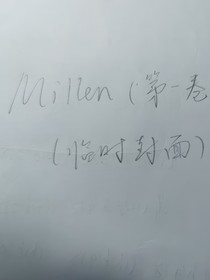 Millen(第一卷
(临时封面)